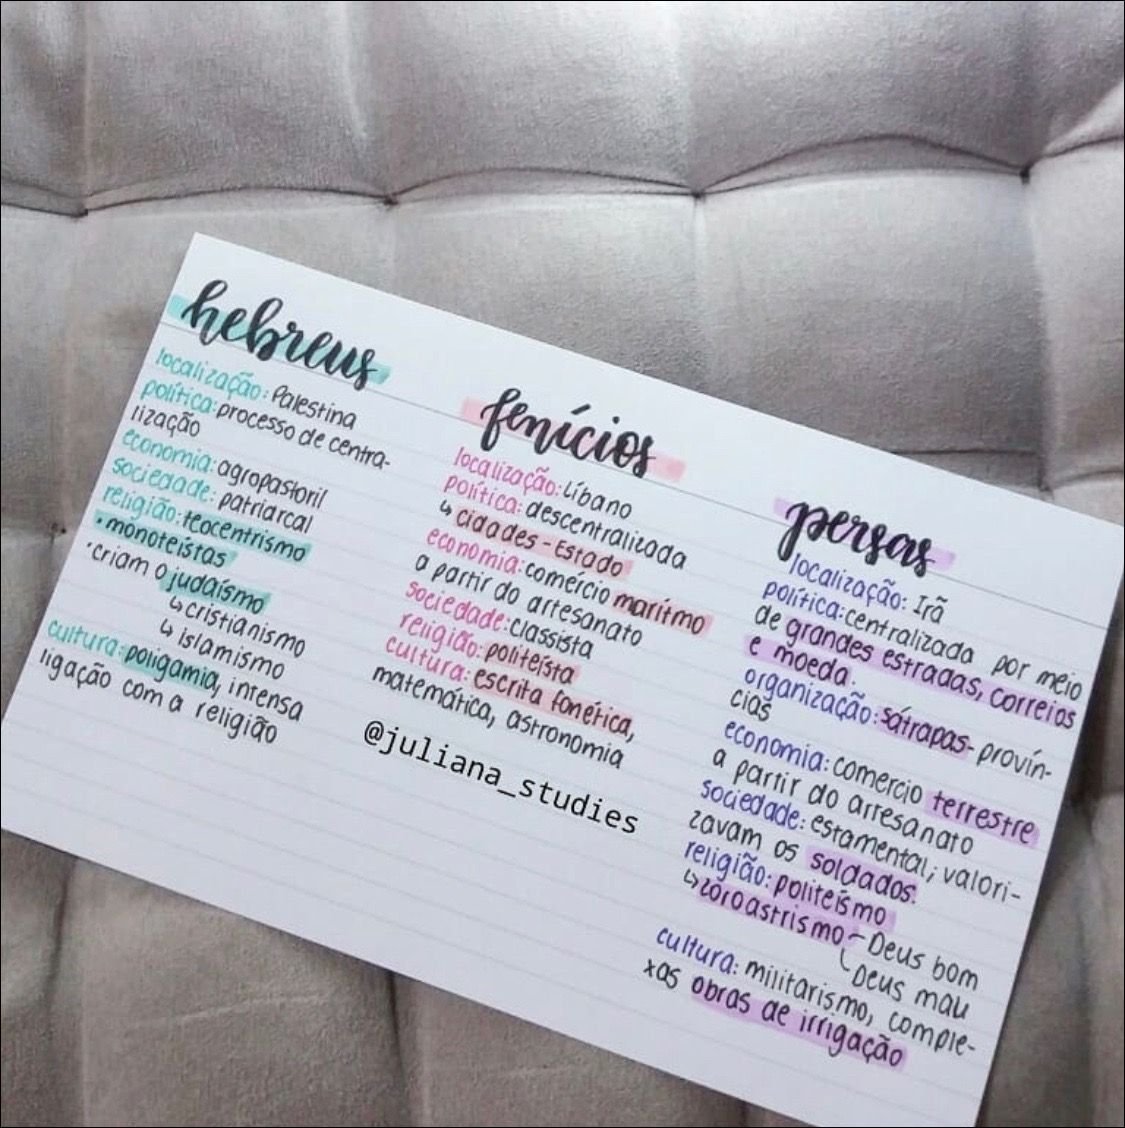 hebreus
localização: Palestina
política: processo de centra-
lização
economia: agropastoril
sociedade: patriarcal
religião: teocentrismo
• monoteístas
• criam o judaísmo
↳ cristianismo
↳ islamismo
cultura: poligamia, intensa
ligação com a religião
fenícios
localização: Líbano
política: descentralizada
↳ cidades-Estado
economia: comércio marítmo
a partir do artesanato
sociedade: classista
religião: politeísta
cultura: escrita fonética,
matemática, astronomia
@juliana_studies
persas
localização: Irã
política: centralizada por meio
de grandes estradas, correios
e moeda.
organização: sátrapas - provín-
cias
economia: comercio terrestre
a partir do arresanato
sociedade: estamental; valori-
zavam os soldados.
religião: politeísmo
↳ zoroastrismo - Deus bom
Deus mau
cultura: militarismo, comple-
xas obras de irrigação